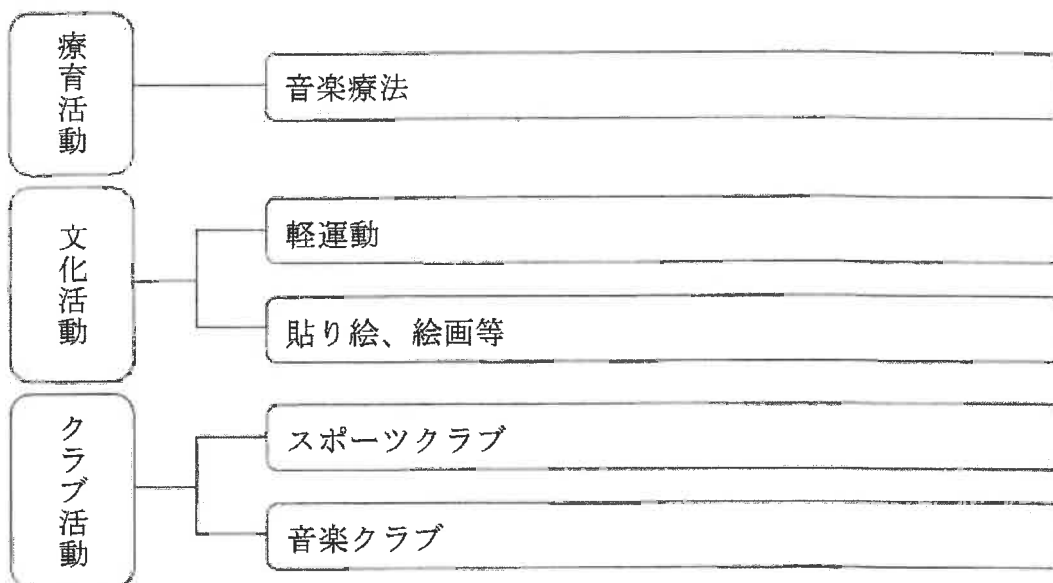 療育活動
音楽療法
文化活動
軽運動
貼り絵、絵画等
クラブ活動
スポーツクラブ
音楽クラブ